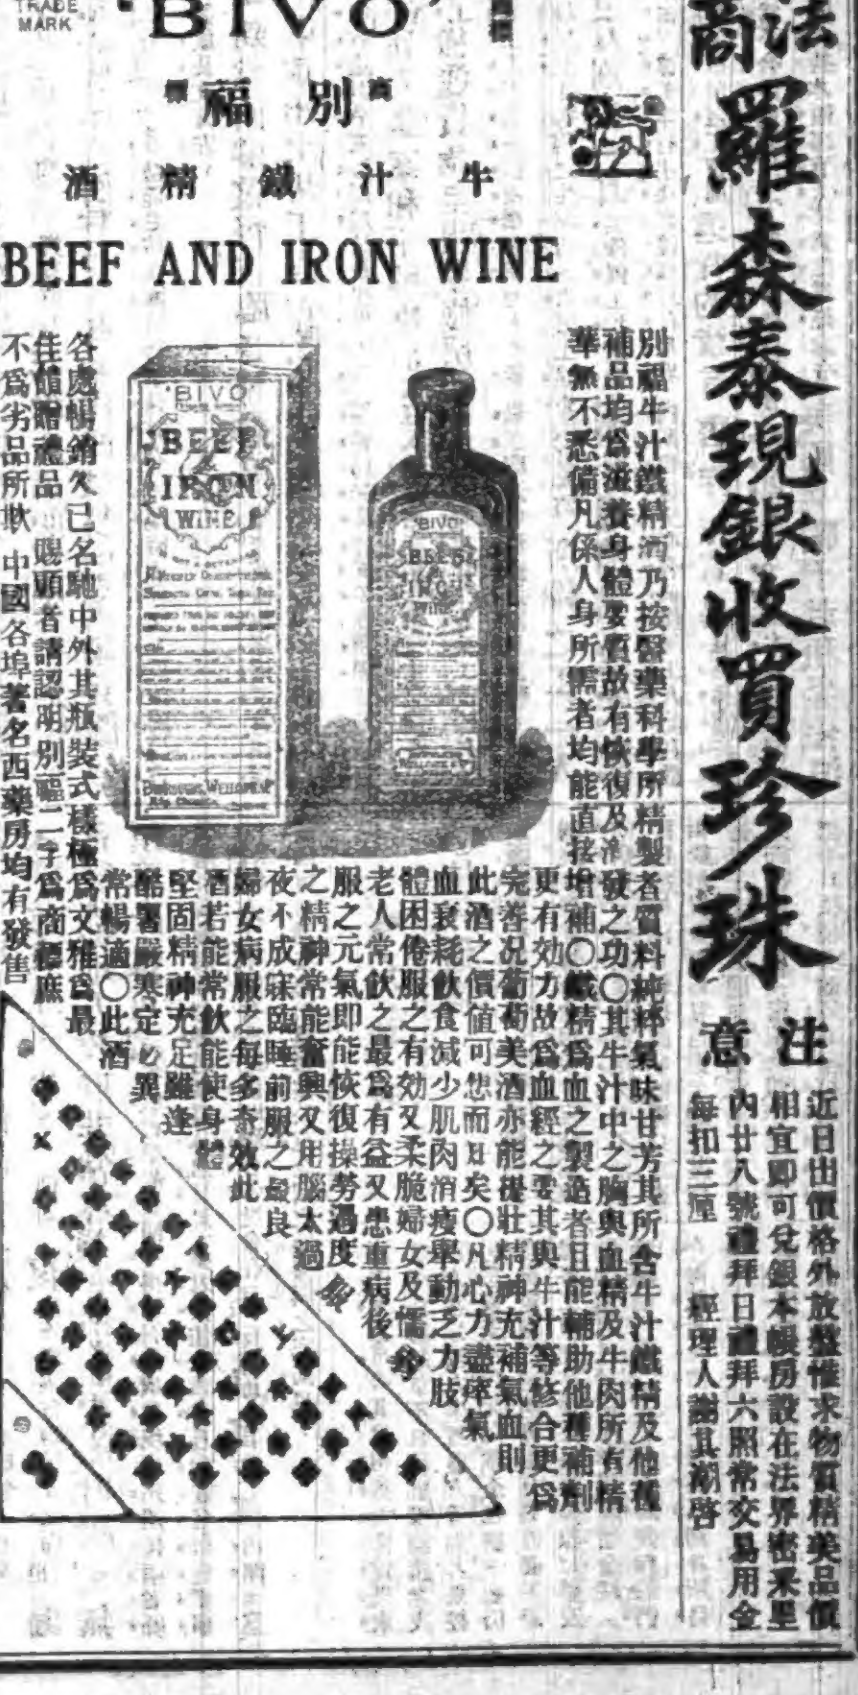 法
商
羅森泰現銀收買珍珠
注意
近日出價格外放盤惟求物質精美品價
相宜即可兌銀本帳房設在法界密采里
內廿八號禮拜日禮拜六照常交易用金
每扣三厘　經理人謝其潮啓
TRADE MARK
'BIVO'
商標
別福
牛汁鐵精酒
BEEF AND IRON WINE
別福牛汁鐵精酒乃按醫藥科學所精製者質料純粹氣味甘芳其所含牛汁鐵精及他種
補品均爲滋養身體要質故有恢復及滑發之功〇其牛汁中之胸與血精及牛肉所有精
華無不悉備凡係人身所需者均能直接增補〇鐵精爲血之製造者且能輔助他種補劑
更有効力故爲血經之要其與牛汁等修合更爲
完善况葡萄美酒亦能提壯精神充補氣血則
此酒之價值可想而知矣〇凡心力盡瘁氣
血衰耗飲食減少肌肉消瘦舉動乏力肢
體困倦服之有効又柔脆婦女及懦弱
老人常飲之最爲有益又患重病後
服之元氣即能恢復操勞過度
之精神常能奮興又用腦太過
夜不成寐臨睡前服之最良
婦女病服之每多奇效此
酒若能常飲能使身體
堅固精神充足雖逢
酷暑嚴寒定必異
常暢適〇此酒
各處暢銷久已名馳中外其瓶裝式樣極爲文雅爲最
佳饋贈禮品　賜顧者請認明別福二字爲商標庶
不爲劣品所欺　中國各埠著名西藥房均有發售
'BIVO'
BEEF
&
IRON
WINE
BURROUGHS WELLCOME & Co.
'BIVO'
BEEF
&
IRON
WINE